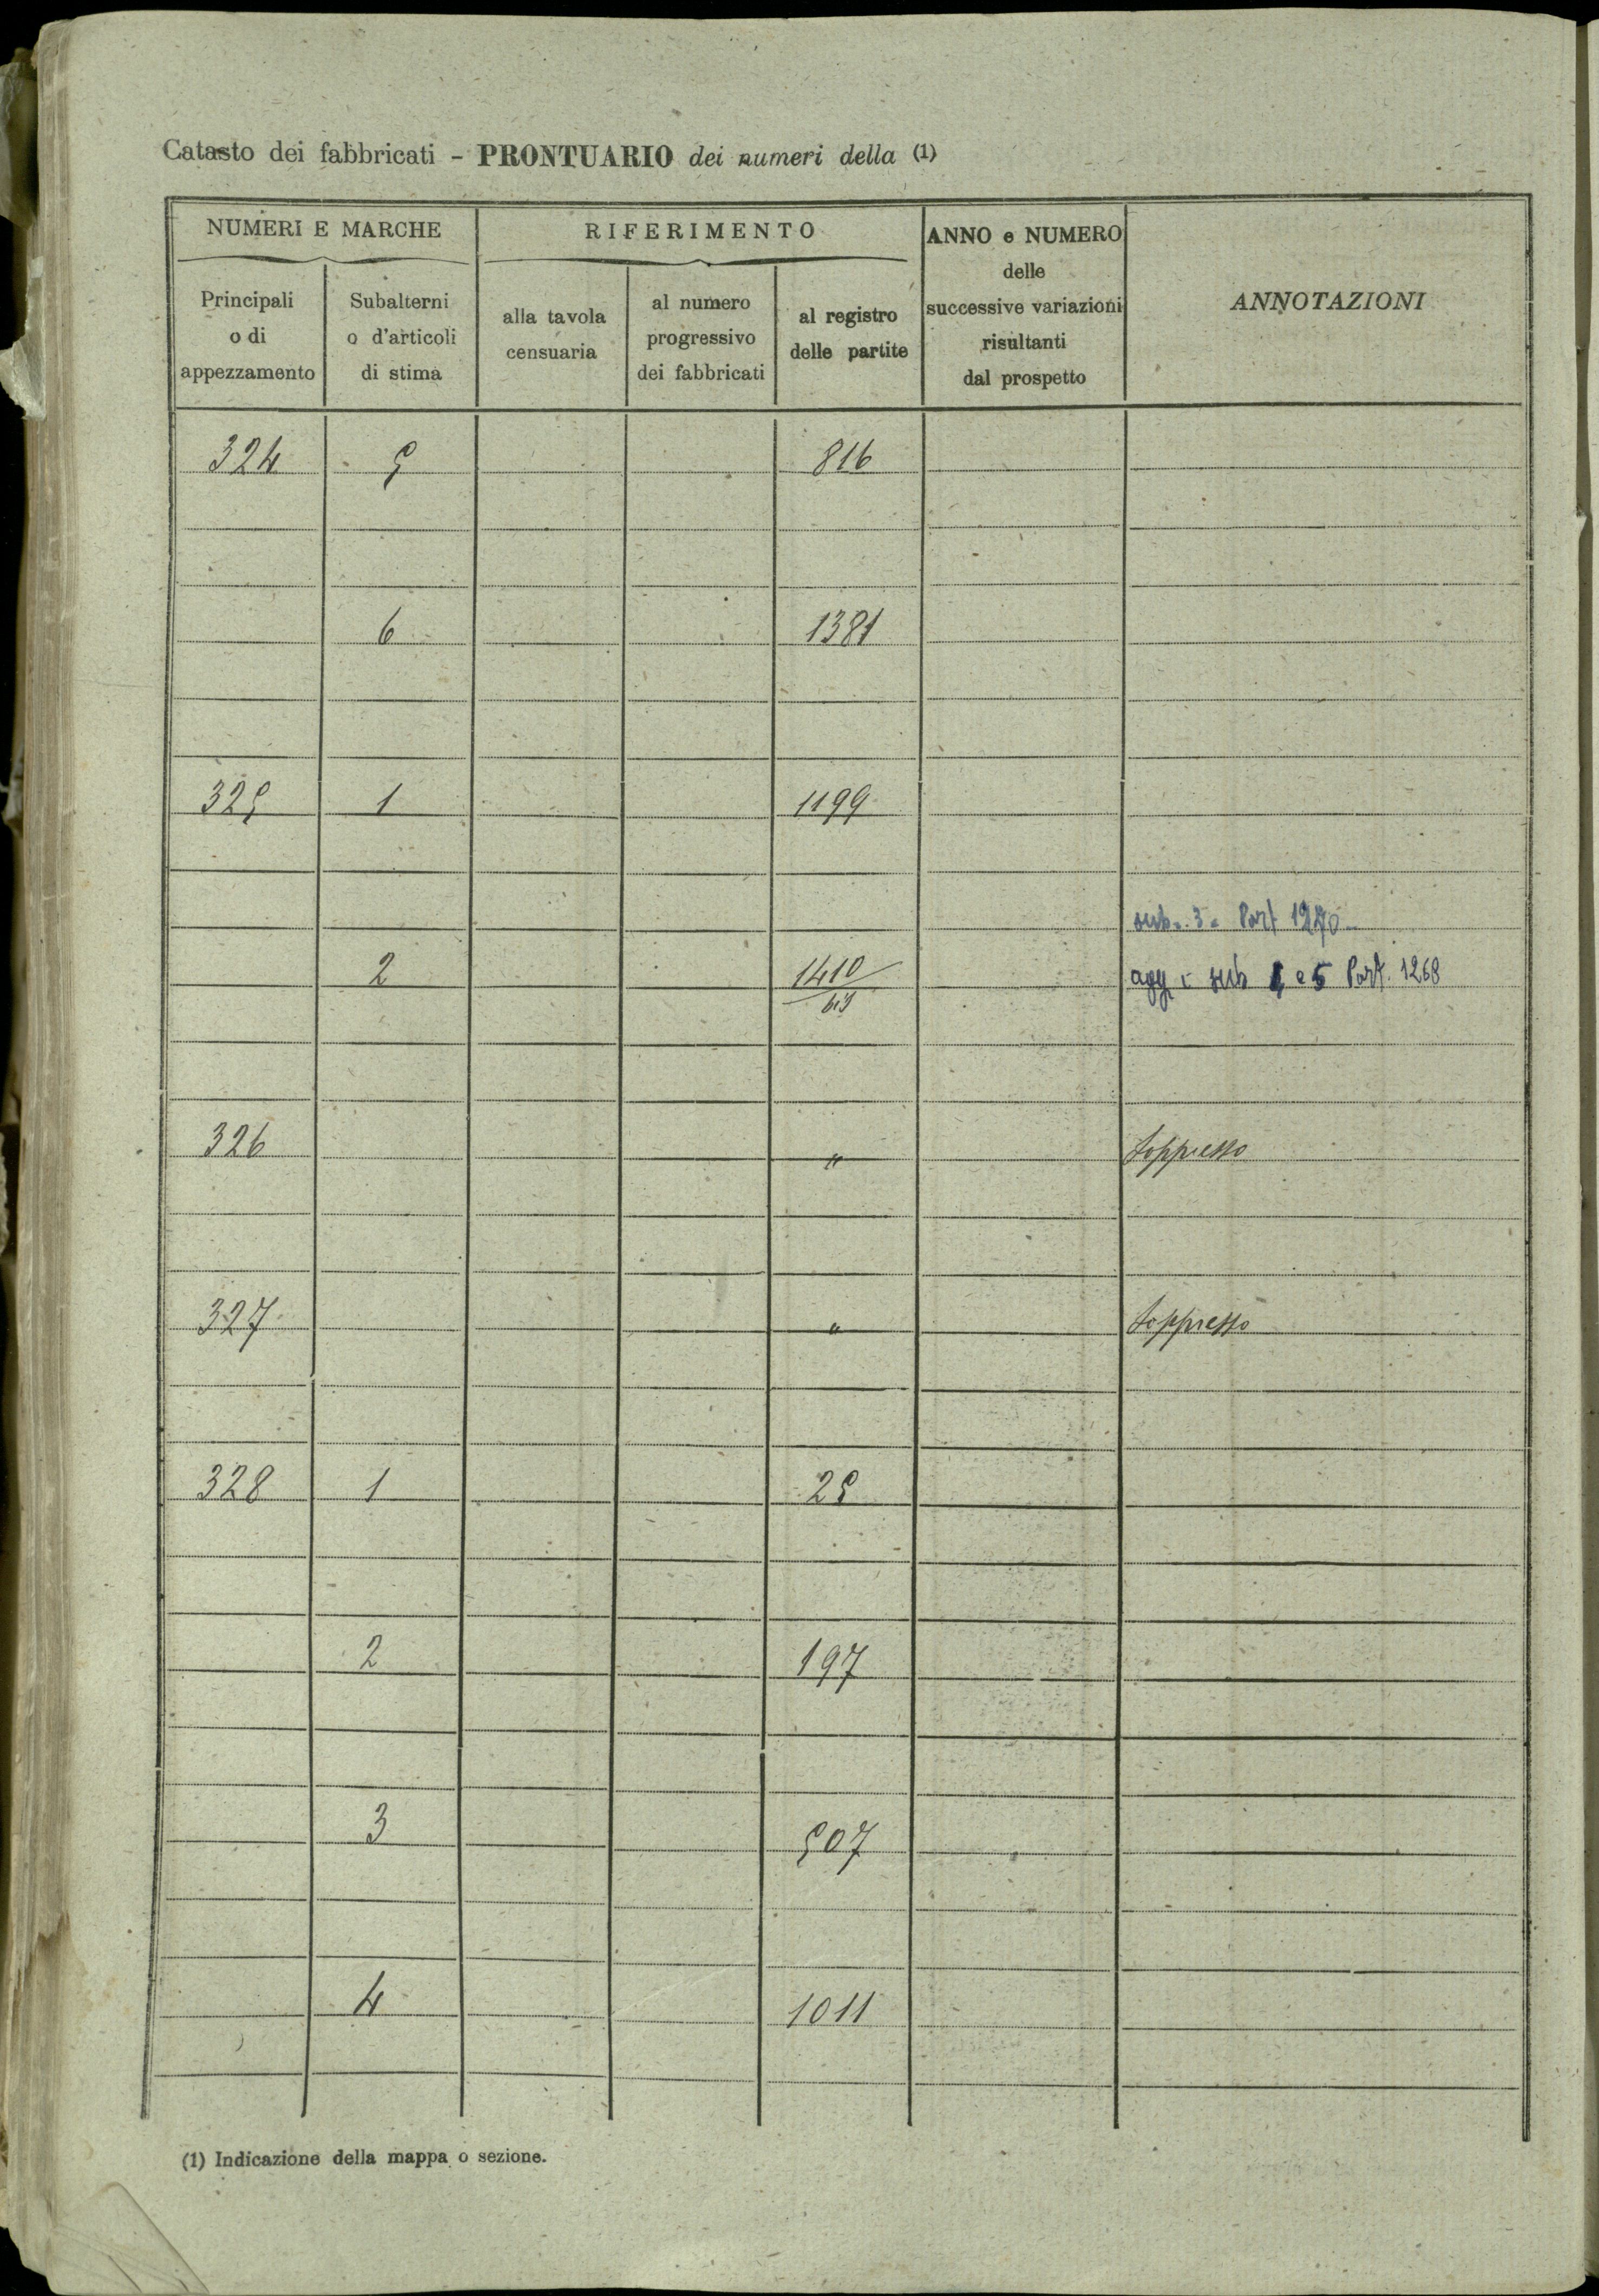 Catasto dei fabbricati - PRONTUARIO dei numeri della (1)
NUMERI E MARCHE
RIFERIMENTO
ANNO e NUMERO
delle
successive variazioni
risultanti
dal prospetto
ANNOTAZIONI
Principali
o di
appezzamento
Subalterni
o d'articoli
di stima
alla tavola
censuaria
al numero
progressivo
dei fabbricati
al registro
delle partite
324 5 816
6 1381
325 1 1199
sub. 3 = Part 1270
2 1410 agg sub e 5 Part. 1268
326 " Soppresso
327 " Soppresso
328 1 25
2 197
3 507
4 1011
(1) Indicazione della mappa o sezione.